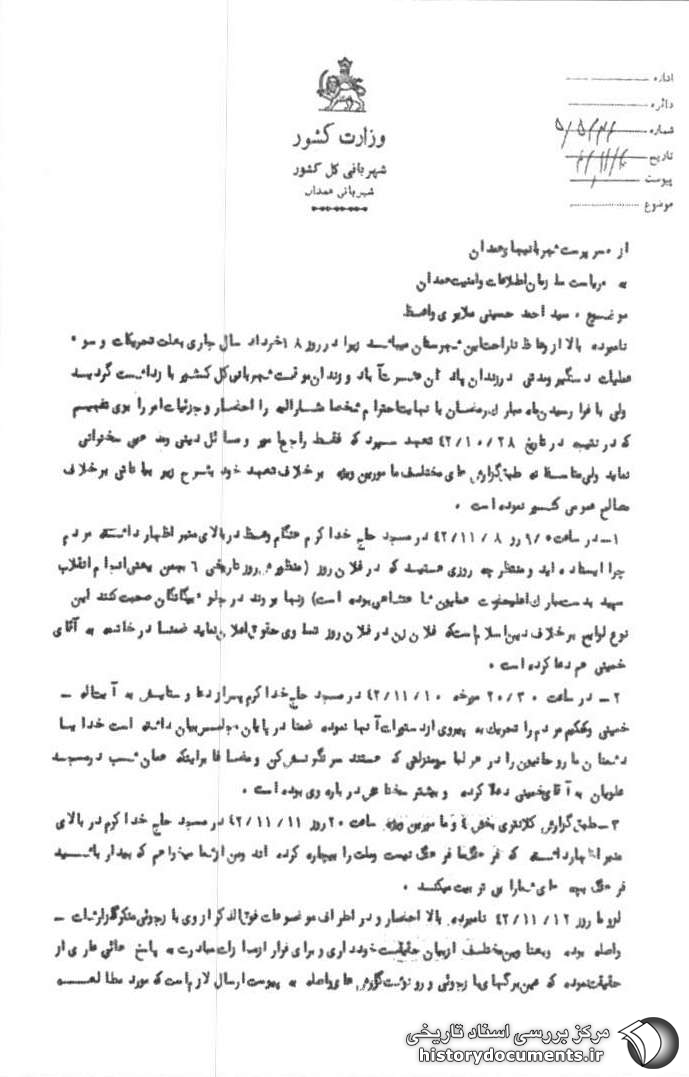 اداره
دائره
شماره
تاریخ
پیوست
موضوع
وزارت کشور
شهربانی کل کشور
شهربانی همدان
از سرپرست شهربانیهای همدان
به ریاست سازمان اطلاعات وامنیت همدان
موضوع سید احمد حسینی ملایری واعظ
نامبرده بالا از وعاظ ناراحت این شهرستان میباشد زیرا در روز ۱۸ خرداد سال جاری بعلت تحریکات و سوء
عملیات دستگیر ومدتی در زندان و زندان موقت شهربانی کل کشور بازداشت گردید
ولی با فرا رسیدن ماه مبارک رمضان با نهایت احترام شخصا مشارالیه را احضار و جزئیات امر را بوی تفهیم
که در نتیجه در تاریخ ۴۲/۱۰/۲۸ تعهد سپرد که فقط راجع بامور و مسائل دینی ومذهبی سخنرانی
نماید ولی متاسفانه طبق گزارش های مختلف مامورین ویژه برخلاف تعهد خود بشرح زیر بیاناتی برخلاف
مصالح عمومی کشور نموده است .
۱- در ساعت روز ۴۲/۱۱/۸ در مسجد حاج خدا کرم هنگام وعظ در بالای منبر اظهار داشته مردم
چرا ایستاده اید و منتظر چه روزی هستید که در فلان روز (منظور روز تاریخی ۶ بهمن یعنی انجام انقلاب
سپید بدست مبارک اعلیحضرت همایون شاهنشاهی بوده است) زنها بروند در جلو بیگانگان صحبت کنند این
نوع لوایح برخلاف دین اسلام است که فلان زن در فلان روز تساوی حقوق اعلان نماید ضمنا در خاتمه به آقای
خمینی هم دعا کرده است .
۲- در ساعت ۲۰/۳۰ مورخه ۴۲/۱۱/۱۰ در مسجد حاج خدا کرم پس از دعا و ستایش به آیت اله -
خمینی وحکیم مردم را تحریک به پیروی از دستورات آنها نموده ضمنا در پایان مجلس بیان داشته است خدایا
دشمنان ما روحانیون را در هر لباس و منزلتی که هستند سرنگونش کن و مضافا براینکه همان شب در مسجد
علویان به آقای خمینی دعا کرده و بیشتر سخنانش در باره وی بوده است .
۳- طبق گزارش کلانتری بخش ۴ و مامورین ویژه ساعت ۲۰ روز ۴۲/۱۱/۱۱ در مسجد حاج خدا کرم در بالای
منبر اظهار داشته که فرهنگ ما فرهنگ نیست وملت را بیچاره کرده اند ومن از شما میخواهم که بیدار باشید
فرهنگ بچه های شما را بی تربیت میکند .
لزوما روز ۴۲/۱۱/۱۲ نامبرده بالا احضار و در اطراف موضوعات فوق الذکر از وی بازجوئی منکر گزارشات -
واصله بوده وبعناوین مختلف از بیان حقیقت خودداری و برای فرار از مجازات مبادرت به پاسخ هائی عاری از
حقیقت نموده که عین برگهای بازجوئی و رونوشت گزارش های واصله به پیوست ارسال لازم است که مورد مطالعه
مرکز بررسی اسناد تاریخی
historydocuments.ir